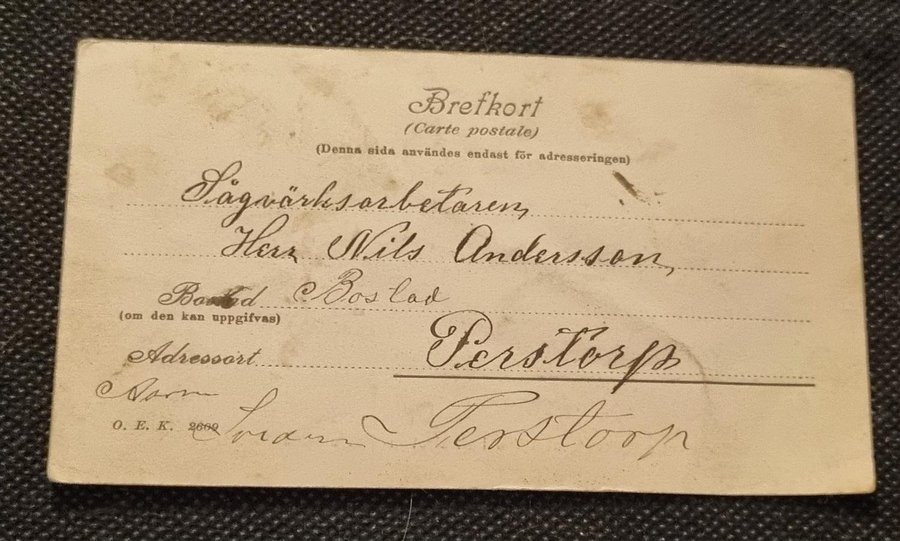 Brefkort
(Carte postale)
(Denna sida användes endast för adresseringen)
Sågvärksarbetaren,
Herr Nils Andersson,
Bostad Bostad
(om den kan uppgifvas)
Adressort Perstorp
O. E. K. 2609
Perstorp